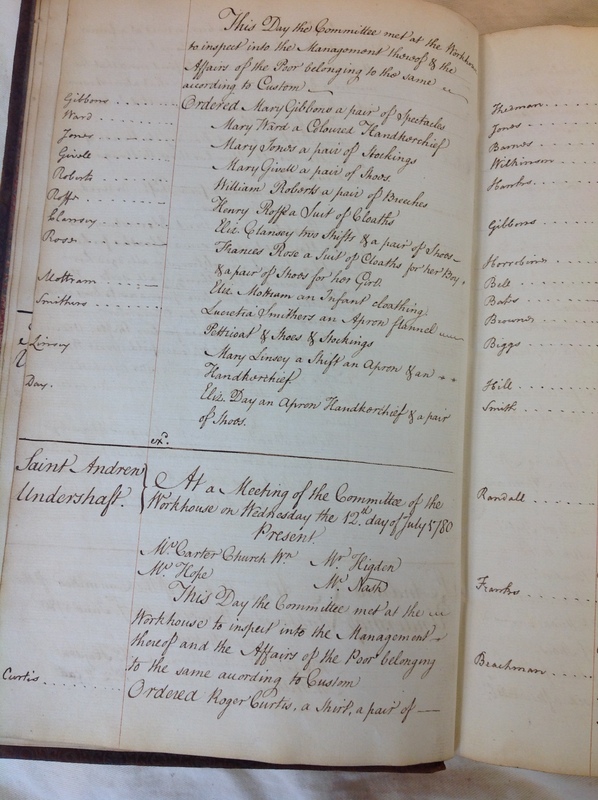 This Day the Committee met at the Workhou
to inspect into the Management thereof & the
Affairs of the Poor belonging to the same
according to Custom
Gibbons Ordered Mary Gibbons a pair of Spectacles
Ward Mary Ward a Coloured Handkerchief
Jones Mary Jones a pair of Stockings
Givell Mary Givell a pair of Shoes.
Roberts William Roberts a pair of Breeches
Roffe Henry Roffe a Suit of Cloaths
Clansey Eliz. Clansey two Shifts & a pair of Shoes
Rose Frances Rose a Suit of Cloaths for her Boy
& a pair of Shoes for her Girl
Mottram Eliz. Mottram an Infant cloathing
Smithers Lucretia Smithers an Apron flannel
Petticoat & Shoes & Stockings
Linsey Mary Linsey a Shift an Apron & an
Handkerchief
Day. Eliz. Day an Apron Handkerchief & a pair
of Shoes.
exd.
Saint Andrew
Undershaft.
At a Meeting of the Committee of the
Workhouse on Wednesday the 12th. day of July 1780
Present
Mr. Carter Church Wn. Mr. Higden
Mr. Hope Mr. Nash
This Day the Committee met at the
Workhouse to inspect into the Management
thereof and the Affairs of the Poor belonging
to the same according to Custom
Curtis Ordered Roger Curtis, a Shirt, a pair of
Jones
Barnes
Wilkinson
Hawks
Gibbons
Horrobins
Bell
Bates
Browne
Biggs
Hill
Smith
Randall
Franks
Beachman